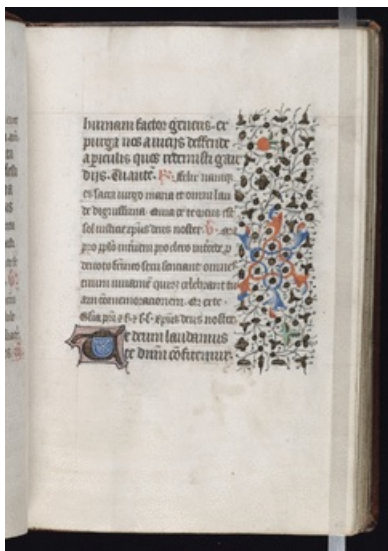 humani factor gñeris. et
purga nos a vicijs deffende
a piculis quos redemisti gau
dijs. R. Felix namq
es sacra virgo maria et omni lau
de dignissima. Quia ex te ortus est
sol iusticie xpus deus noster. V. Ora
pro pplo interveni pro clero intercede p
devoto femineo sexu sentiant omnes
tuum iuvamē celebrant tu
am cōmemoracionem. Ex te.
Glia pri et f. et s. s. Xpus deus noster.
Te deum laudamus
te dnm cōfitemur.